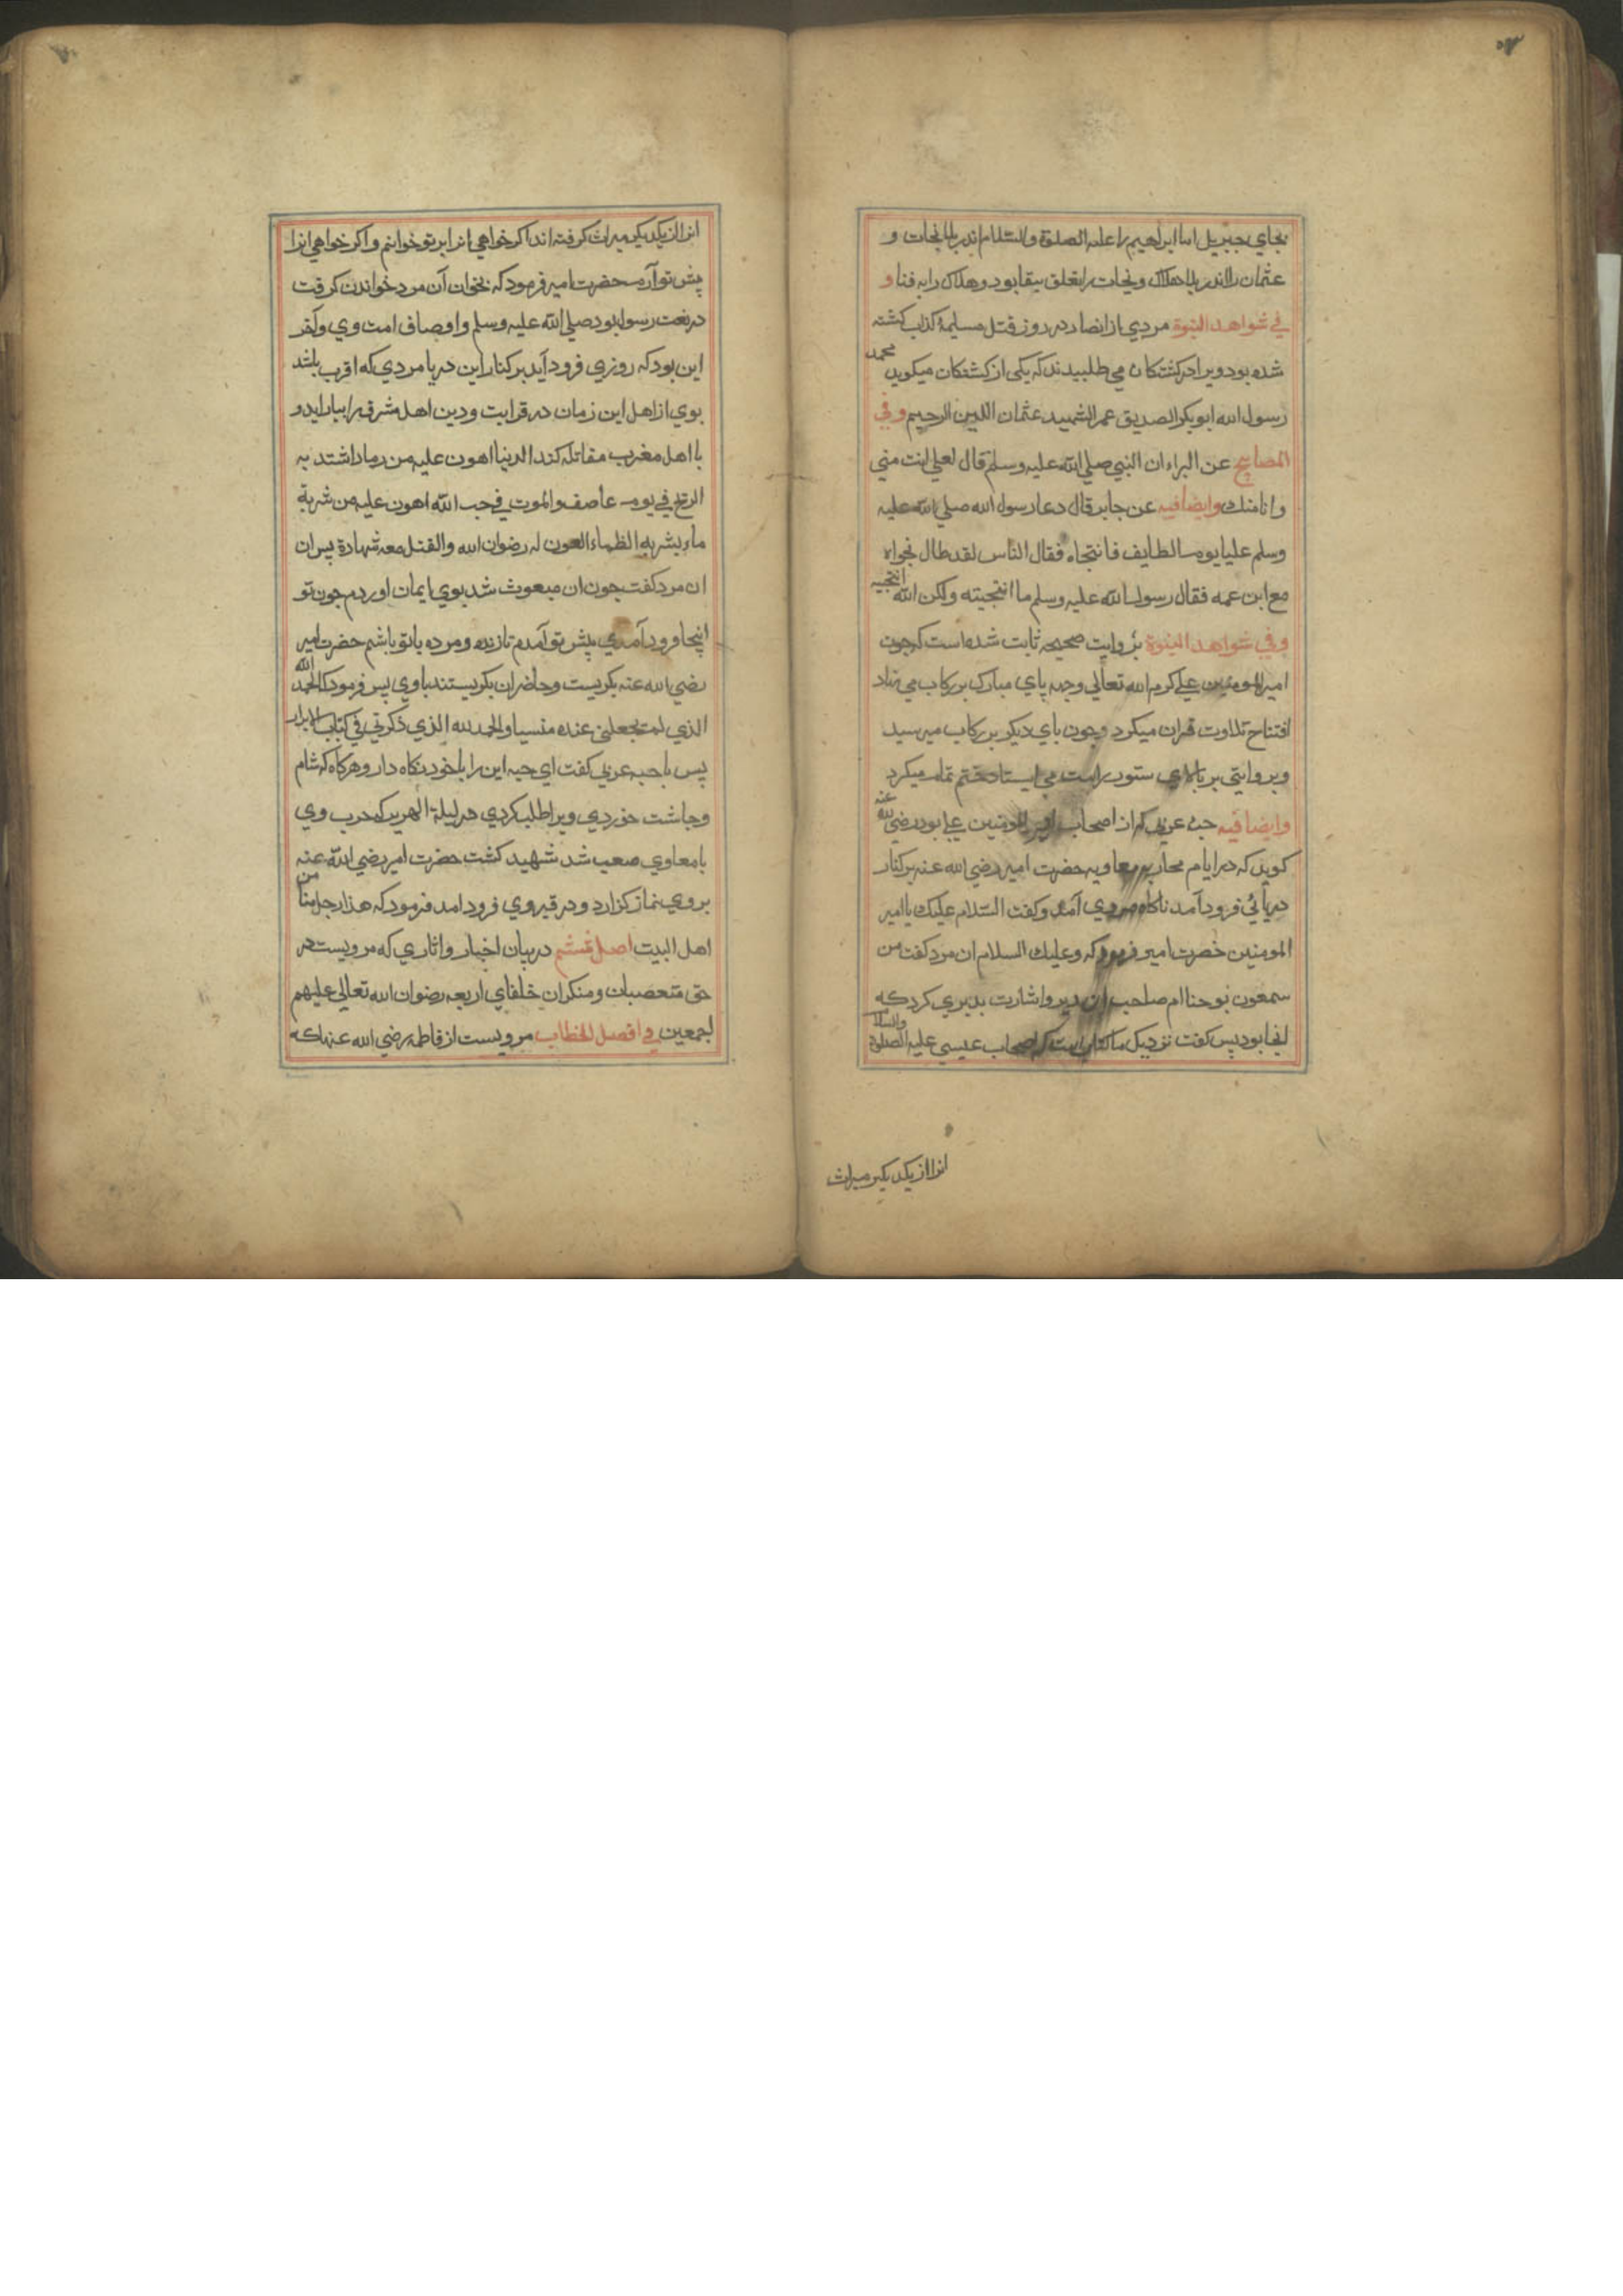 بجاي جبريل اما ابراهيم را عليه الصلوة والسلام اندر بلا نجات و
عثمان را اندر بلا هلاك و نجات را تعلق ببقا بود و هلاك را به فنا و
في شواهد النبوة مردي از انصار در روز قتل مسيلمة كذاب كشته
شده بود ويرا در كشتكان مي طلبيدند كه يكى از كشتكان ميكويد محمد
رسول الله ابو بكر الصديق عمر الشهيد عثمان اللين الرحيم وفي
المصابيح عن البراء ان النبي صلي الله عليه وسلم قال لعلي انت مني
وانا منك وايضا فيه عن جابر قال دعا رسول الله صلي الله عليه
وسلم عليا يوم الطايف فانتجاه فقال الناس لقد طال نجواه
مع ابن عمه فقال رسول الله عليه وسلم ما انتجيته ولكن الله انتجيه
وفي شواهد النبوة بروايت صحيحه ثابت شده است كه جون
امير المومنين علي كرم الله تعالي وجهه پاي مبارك بر ركاب مي نهاد
افتتاح تلاوت قران ميكرد وجون باي ديكر بر ركاب ميرسيد
وبروايتى بر بالاي ستور راست مي ايستاد ختم تمام ميكرد
وايضا فيه حبه عربي كه از اصحاب امير المومنين علي بود رضي الله عنه
كويد كه در ايام محاربه معاويه حضرت امير رضي الله عنه بر كنار
دريائي فرود آمد ناكاه مردي آمد وكفت السلام عليك يا امير
المومنين حضرت امير فرمود كه وعليك السلام ان مرد كفت من
سمعون نوحنا ام صاحب اين دير واشارت بديري كرد كه
انجا بود پس كفت نزديك ما كتابي است كه اصحاب عيسي عليه الصلوة والسلام
انرا از يكديكر ميراث
انرا از يكديكر ميراث كرفته اند اكر خواهي انرا بر تو خوانم واكر خواهي انرا
پيش تو آرم حضرت امير فرمود كه بخوان آن مرد خواندن كرفت
در نعت رسول بود صلي الله عليه وسلم واوصاف امت وي و آخر
اين بود كه روزي فرود آيد بر كنار اين دريا مردي كه اقرب باشد
بوي از اهل اين زمان در قرابت ودين اهل مشرق را بيارايد و
با اهل مغرب مقاتله كند الدنيا اهون عليه من رماد اشتد به
الريح في يوم عاصف والموت في حب الله اهون عليه من شربة
ماء يشر به الظماء العون له رضوان الله والقتل معه شهادة پس ان
ان مرد كفت جون ان مبعوث شد بوي ايمان اوردم جون تو
اينجا فرود آمدي پيش تو آمدم تا زنده ومرده با تو باشم حضرت امير
رضي الله عنه بكريست وحاضران بكريستند با وي پس فرمود كه الحمد لله
الذي لم تجعلني عنده منسيا والحمد لله الذي ذكرني في كتاب الابرار
پس با حبه عربي كفت اي حبه اين را با خود نكاه دار وهركاه كه شام
وجاشت خوردي ويرا طلب كردي در ليلة الهرير كه حرب وي
با معاوي صعب شد شهيد كشت حضرت امير رضي الله عنه
بر وي نماز كزارد و در قبر وي فرود امد فرمود كه هذا رجل منا من
اهل البيت اصل ششم در بيان اخبار واثاري كه مرويست در
حق متعصبان ومنكران خلفاي اربعه رضوان الله تعالي عليهم
اجمعين في افصل الخطاب مرويست از فاطمه رضي الله عنها كه